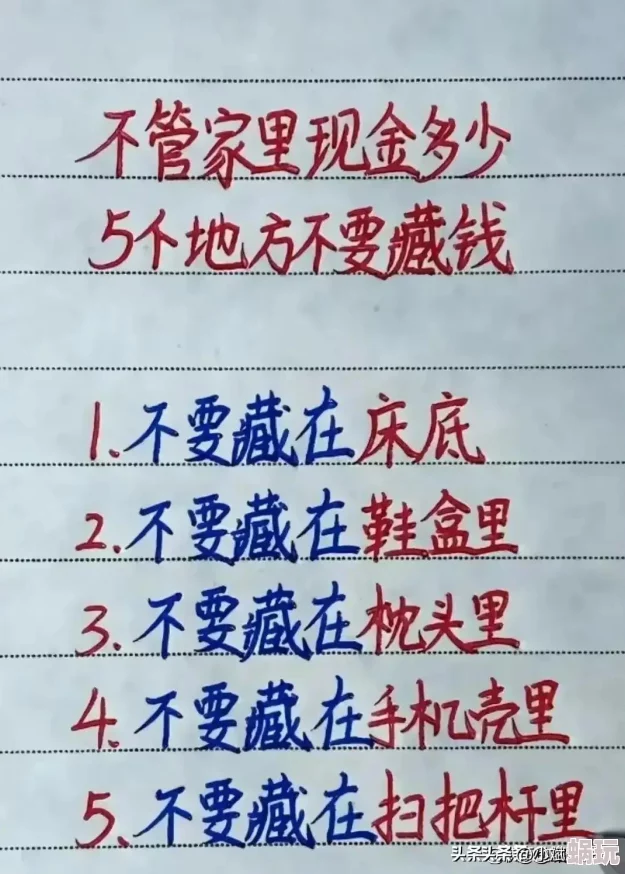 不管家里现金多少
5个地方不要藏钱
1.不要藏在床底
2.不要藏在鞋盒里
3.不要藏在枕头里
4.不要藏在手机壳里
5.不要藏在扫把杆里
蜗玩